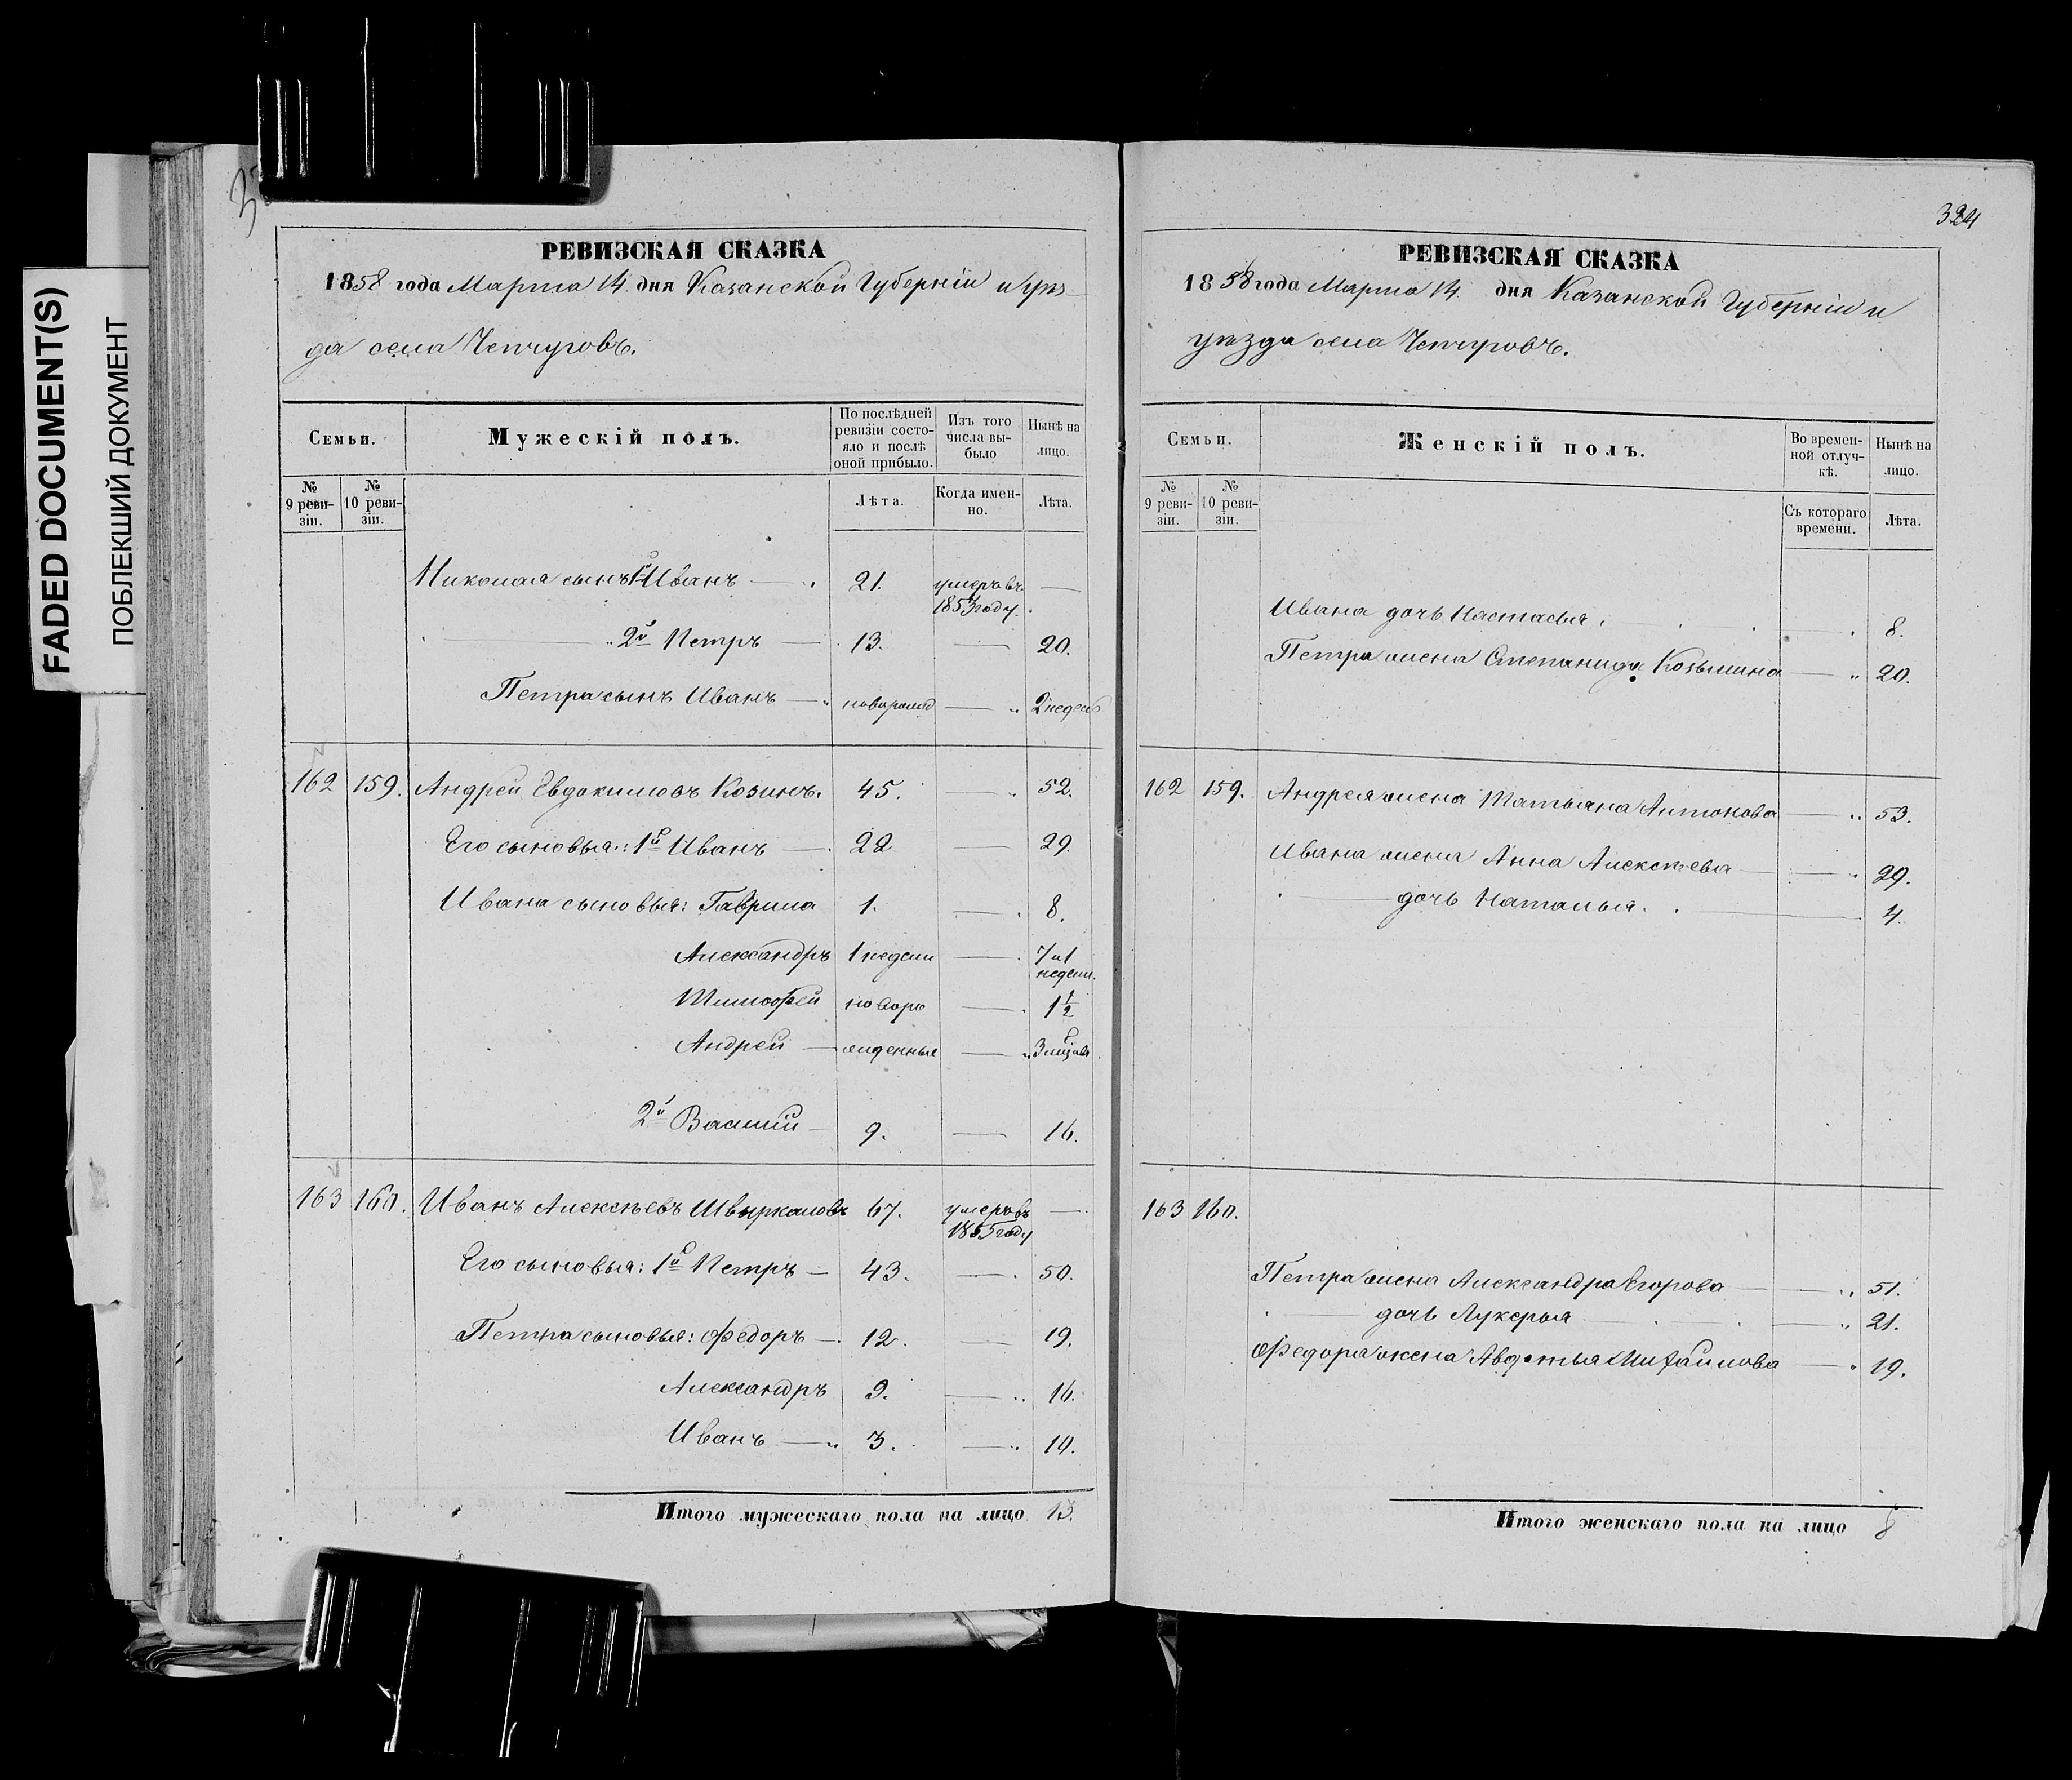 FADED DOCUMENT(S)
ПОБЛЕКШИЙ ДОКУМЕНТ
РЕВИЗСКАЯ СКАЗКА
1858 года Марта 14 дня Казанской Губерніи и уѣз-
да села Чепчуговъ.
Семьи.
Мужескій полъ.
По послѣдней ревизіи состояло и послѣ оной прибыло.
Изъ того числа вы-было
Нынѣ на лицо.
№ 9 реви-зіи.
№ 10 реви-зіи.
Лѣта.
Когда имен-но.
Лѣта.
Николая сынъ 1й Иванъ 21. умеръ въ 1853 году.
2й Петръ 13. 20.
Петра сынъ Иванъ новорожд 2 недѣл
162 159. Андрей Евдокимовъ Козинъ. 45. 52.
Его сыновья: 1й Иванъ 22 29.
Ивана сыновья: Гаврила 1. 8.
Александръ 1 недели 7 и 1 недели.
Тимофей новоро 1½
Андрей жденные 3 мѣсяц
2й Василій 9. 16.
163 160. Иванъ Алексѣевъ Швыркаловъ 67. умеръ въ 1855 году
Его сыновья: 1й Петръ 43. 50.
Петра сыновья: Федоръ 12. 19.
Александръ 9. 16.
Иванъ 3. 10.
Итого мужескаго пола на лицо 13.
324
РЕВИЗСКАЯ СКАЗКА
1858 года Марта 14. дня Казанской Губерніи и
уѣзда села Чепчуговъ.
Семьи.
Женскій полъ.
Во времен-ной отлуч-кѣ.
Нынѣ на лицо.
№ 9 реви-зіи.
№ 10 реви-зіи.
Съ котораго времени.
Лѣта.
Ивана дочь Настасья. 8.
Петра жена Степанида Козьмина 20.
162 159. Андрея жена Татьяна Антонова 53.
Ивана жена Анна Алексѣева 29.
дочь Наталья. 4.
163 160.
Петра жена Александра Егорова 51.
дочь Лукерья 21.
Федора жена Авдотья Михайлова 19.
Итого женскаго пола на лицо 8